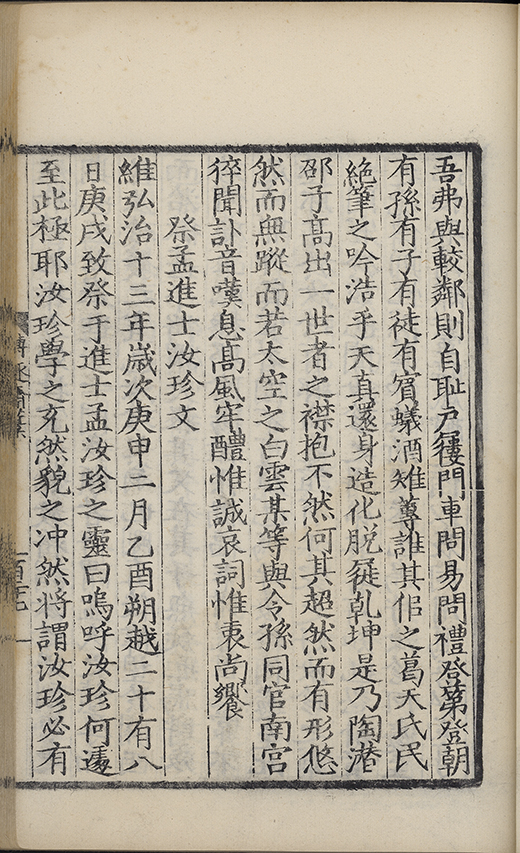 吾弗與較鄰則自耻戸屨門車問易問禮登第登朝
有孫有子有徒有賓蟻酒雉尊誰其侣之葛天氏民
絶筆之吟浩乎天真還身造化脱屣乾坤是乃陶濳
邵子高出一世者之襟抱不然何其超然而有形悠
然而無蹤而若太空之白雲某等與令孫同官南宫
猝聞訃音嘆息高風牢醴惟誠哀詞惟衷尚饗
祭孟進士汝珍文
維弘治十三年歳次庚申二月乙酉朔越二十有八
日庚戌致祭于進士孟汝珍之靈曰嗚呼汝珍何遽
至此極耶汝珍學之充然貌之冲然將謂汝珍必有